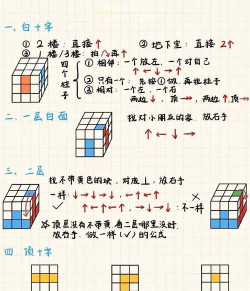 一、白十字
① 2楼：直接↑ ② 地下室：直接 2↑
③ 1楼/3楼：
四个柱子
① 相邻：一个放左，一个对自己
↑←↓→↑
② 只有一个：先按①做，再找柱子
③ 相对：一个左，一个右
两边↓，顶→→，两边↑，顶→→
二、一层白面
找对小朋友的家，放右手
↑←↓→
三、二层
找不带黄色的块，对成⊥，放右手
一样：
✓ ：不一样 ×
※ 顶层没有不带黄，看二层哪里没好，
放右手，做一样(✓)的公式
四、顶十字